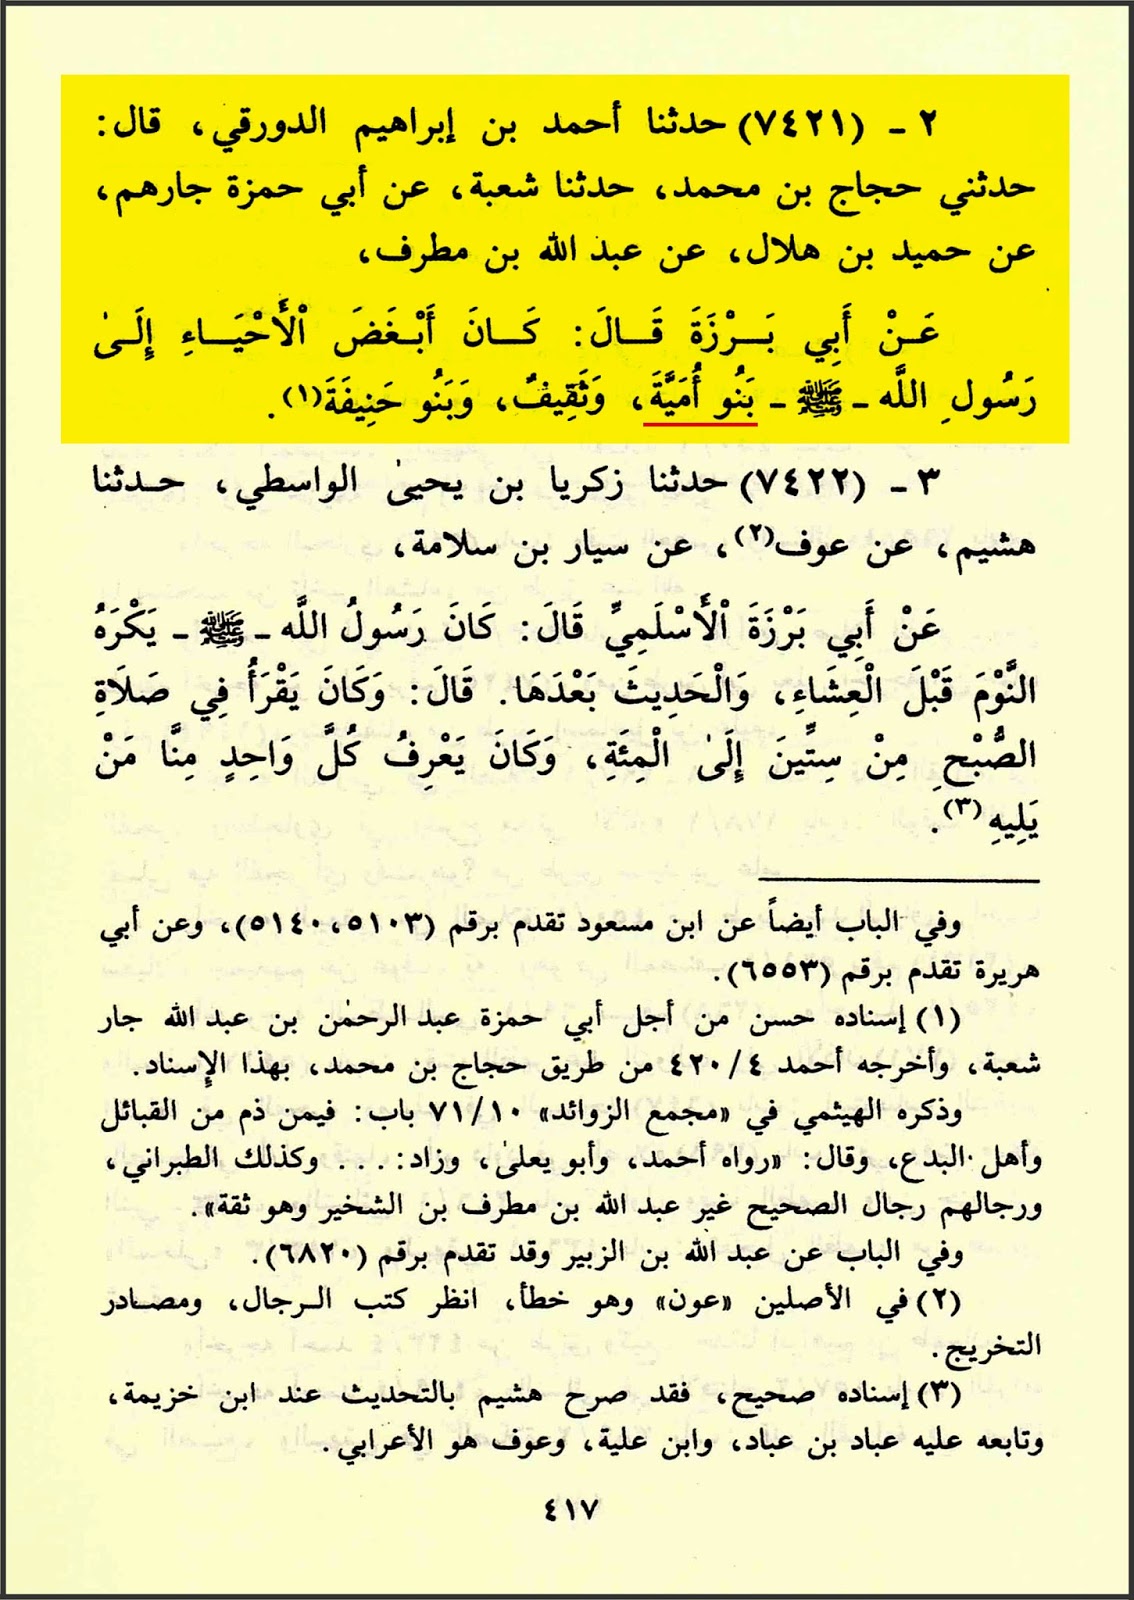 ٢ ـ (٧٤٢١) حدثنا أحمد بن إبراهيم الدورقي، قال:
حدثني حجاج بن محمد، حدثنا شعبة، عن أبي حمزة جارهم،
عن حميد بن هلال، عن عبد الله بن مطرف،
عَنْ أَبِي بَرْزَةَ قَالَ: كَانَ أَبْغَضَ الْأَحْيَاءِ إِلَىٰ
رَسُولِ اللَّه ـ ﷺ ـ بَنُو أُمَيَّةَ، وَثَقِيفٌ، وَبَنُو حَنِيفَةَ(١).
٣ ـ (٧٤٢٢) حدثنا زكريا بن يحيىٰ الواسطي، حدثنا
هشيم، عن عوف(٢)، عن سيار بن سلامة،
عَنْ أَبِي بَرْزَةَ الْأَسْلَمِيِّ قَالَ: كَانَ رَسُولُ اللَّه ـ ﷺ ـ يَكْرَهُ
النَّوْمَ قَبْلَ الْعِشَاءِ، وَالْحَدِيثَ بَعْدَهَا. قَالَ: وَكَانَ يَقْرَأُ فِي صَلَاةِ
الصُّبْحِ مِنْ سِتِّينَ إِلَىٰ الْمِئَةِ، وَكَانَ يَعْرِفُ كُلَّ وَاحِدٍ مِنَّا مَنْ
يَلِيهِ(٣).
وفي الباب أيضاً عن ابن مسعود تقدم برقم (٥١٠٣، ٥١٤٠)، وعن أبي
هريرة تقدم برقم (٦٥٥٣).
(١) إسناده حسن من أجل أبي حمزة عبد الرحمٰن بن عبد الله جار
شعبة، وأخرجه أحمد ٤/٤٢٠ من طريق حجاج بن محمد، بهذا الإسناد.
وذكره الهيثمي في «مجمع الزوائد» ١٠/٧١ باب: فيمن ذم من القبائل
وأهل البدع، وقال: «رواه أحمد، وأبو يعلىٰ، وزاد: ... وكذلك الطبراني،
ورجالهم رجال الصحيح غير عبد الله بن مطرف بن الشخير وهو ثقة».
وفي الباب عن عبد الله بن الزبير وقد تقدم برقم (٦٨٢٠).
(٢) في الأصلين «عون» وهو خطأ، انظر كتب الرجال، ومصادر
التخريج.
(٣) إسناده صحيح، فقد صرح هشيم بالتحديث عند ابن خزيمة،
وتابعه عليه عباد بن عباد، وابن علية، وعوف هو الأعرابي.
٤١٧